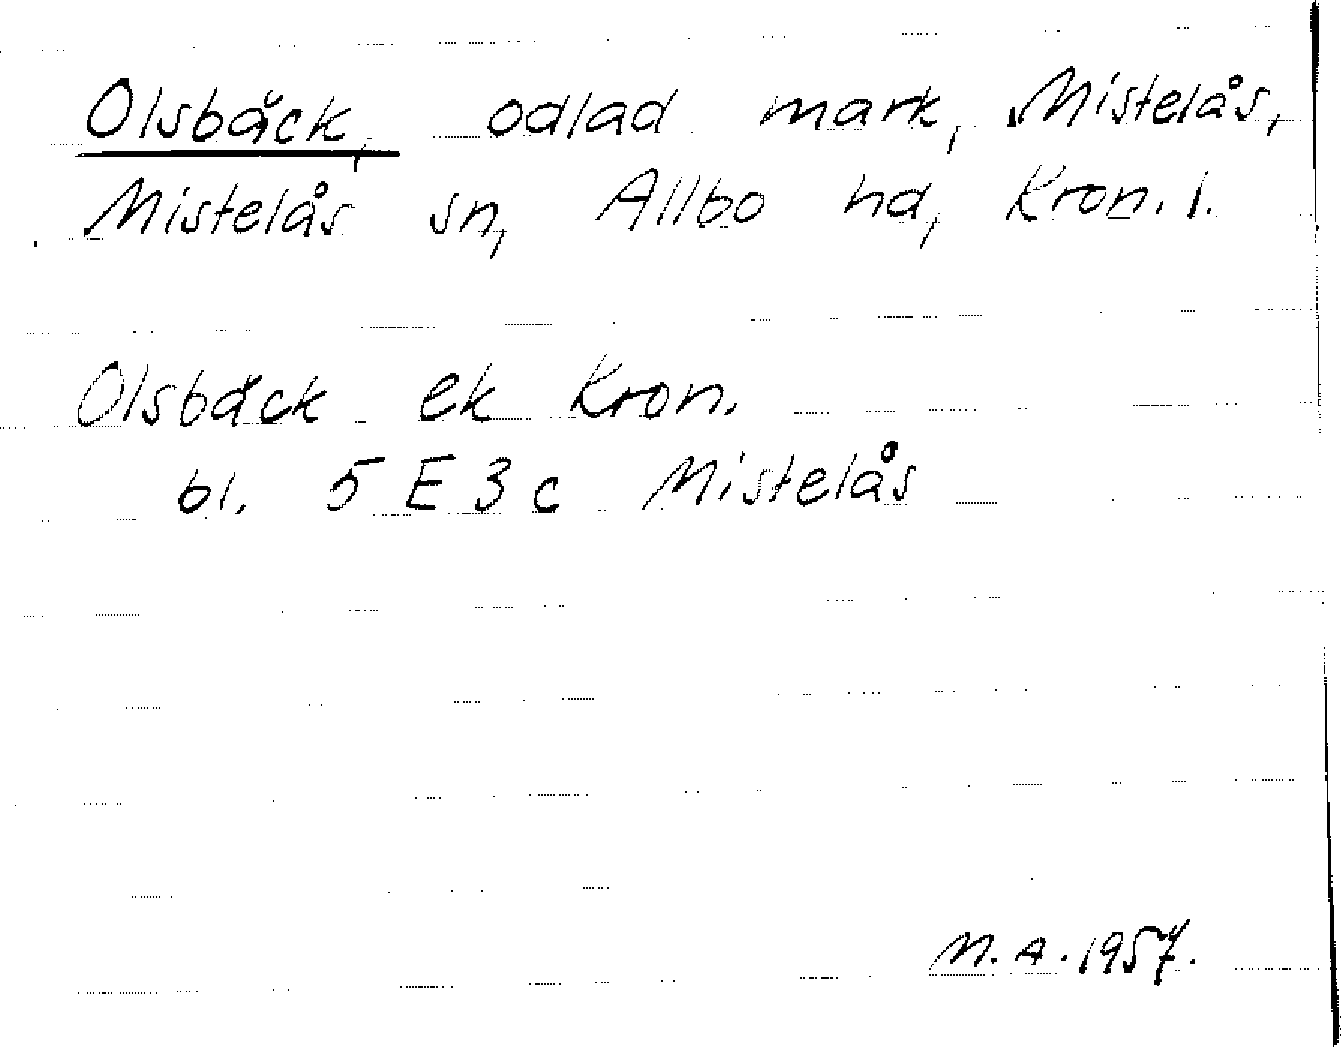 Olsbäck, odlad mark, Mistelås,
Mistelås sn, Allbo hd, Kron. l.
Olsbäck ek Kron.
bl. 5 E 3 c Mistelås
M.A. 1957.